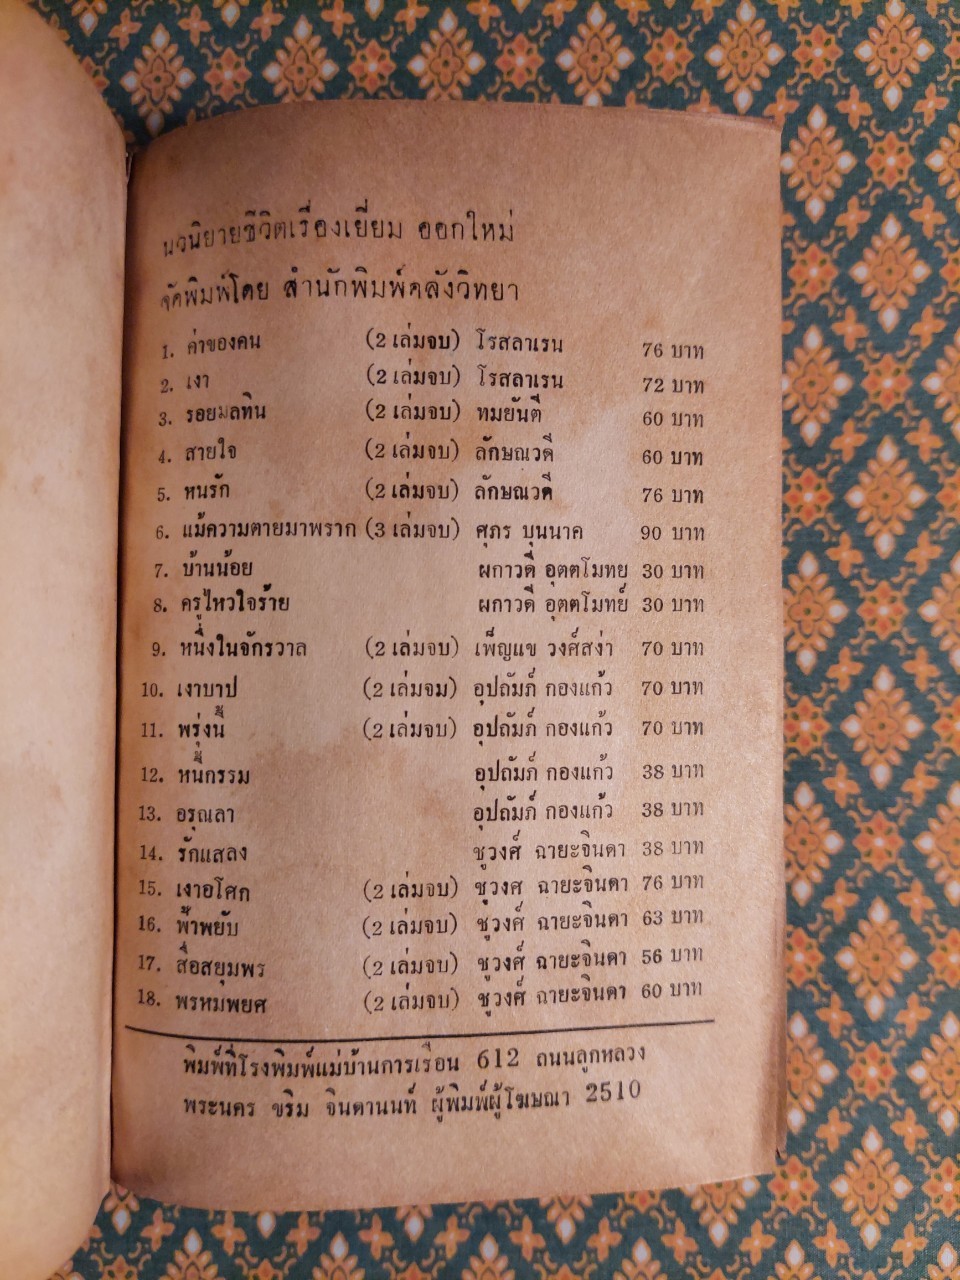 นวนิยายชีวิตเรื่องเยี่ยม ออกใหม่
จัดพิมพ์โดย สำนักพิมพ์คลังวิทยา
1. ค่าของคน (2 เล่มจบ) โรสลาเรน 76 บาท
2. เงา (2 เล่มจบ) โรสลาเรน 72 บาท
3. รอยมลทิน (2 เล่มจบ) ทมยันตี 60 บาท
4. สายใจ (2 เล่มจบ) ลักษณวดี 60 บาท
5. หนี้รัก (2 เล่มจบ) ลักษณวดี 76 บาท
6. แม้ความตายมาพราก (3 เล่มจบ) ศุภร บุนนาค 90 บาท
7. บ้านน้อย ผกาวดี อุตตโมทย 30 บาท
8. ครูไหวใจร้าย ผกาวดี อุตตโมทย์ 30 บาท
9. หนึ่งในจักรวาล (2 เล่มจบ) เพ็ญแข วงศ์สง่า 70 บาท
10. เงาบาป (2 เล่มจม) อุปถัมภ์ กองแก้ว 70 บาท
11. พรุ่งนี้ (2 เล่มจบ) อุปถัมภ์ กองแก้ว 70 บาท
12. หนี้กรรม อุปถัมภ์ กองแก้ว 38 บาท
13. อรุณลา อุปถัมภ์ กองแก้ว 38 บาท
14. รักแสลง ชูวงศ์ ฉายะจินดา 38 บาท
15. เงาอโศก (2 เล่มจบ) ชูวงศ ฉายะจินดา 76 บาท
16. ฟ้าพยับ (2 เล่มจบ) ชูวงศ์ ฉายะจินดา 63 บาท
17. สื่อสยุมพร (2 เล่มจบ) ชูวงศ์ ฉายะจินดา 56 บาท
18. พรหมพยศ (2 เล่มจบ) ชูวงศ์ ฉายะจินดา 60 บาท
พิมพ์ที่โรงพิมพ์แม่บ้านการเรือน 612 ถนนลูกหลวง
พระนคร ขริม จินดานนท์ ผู้พิมพ์ผู้โฆษณา 2510